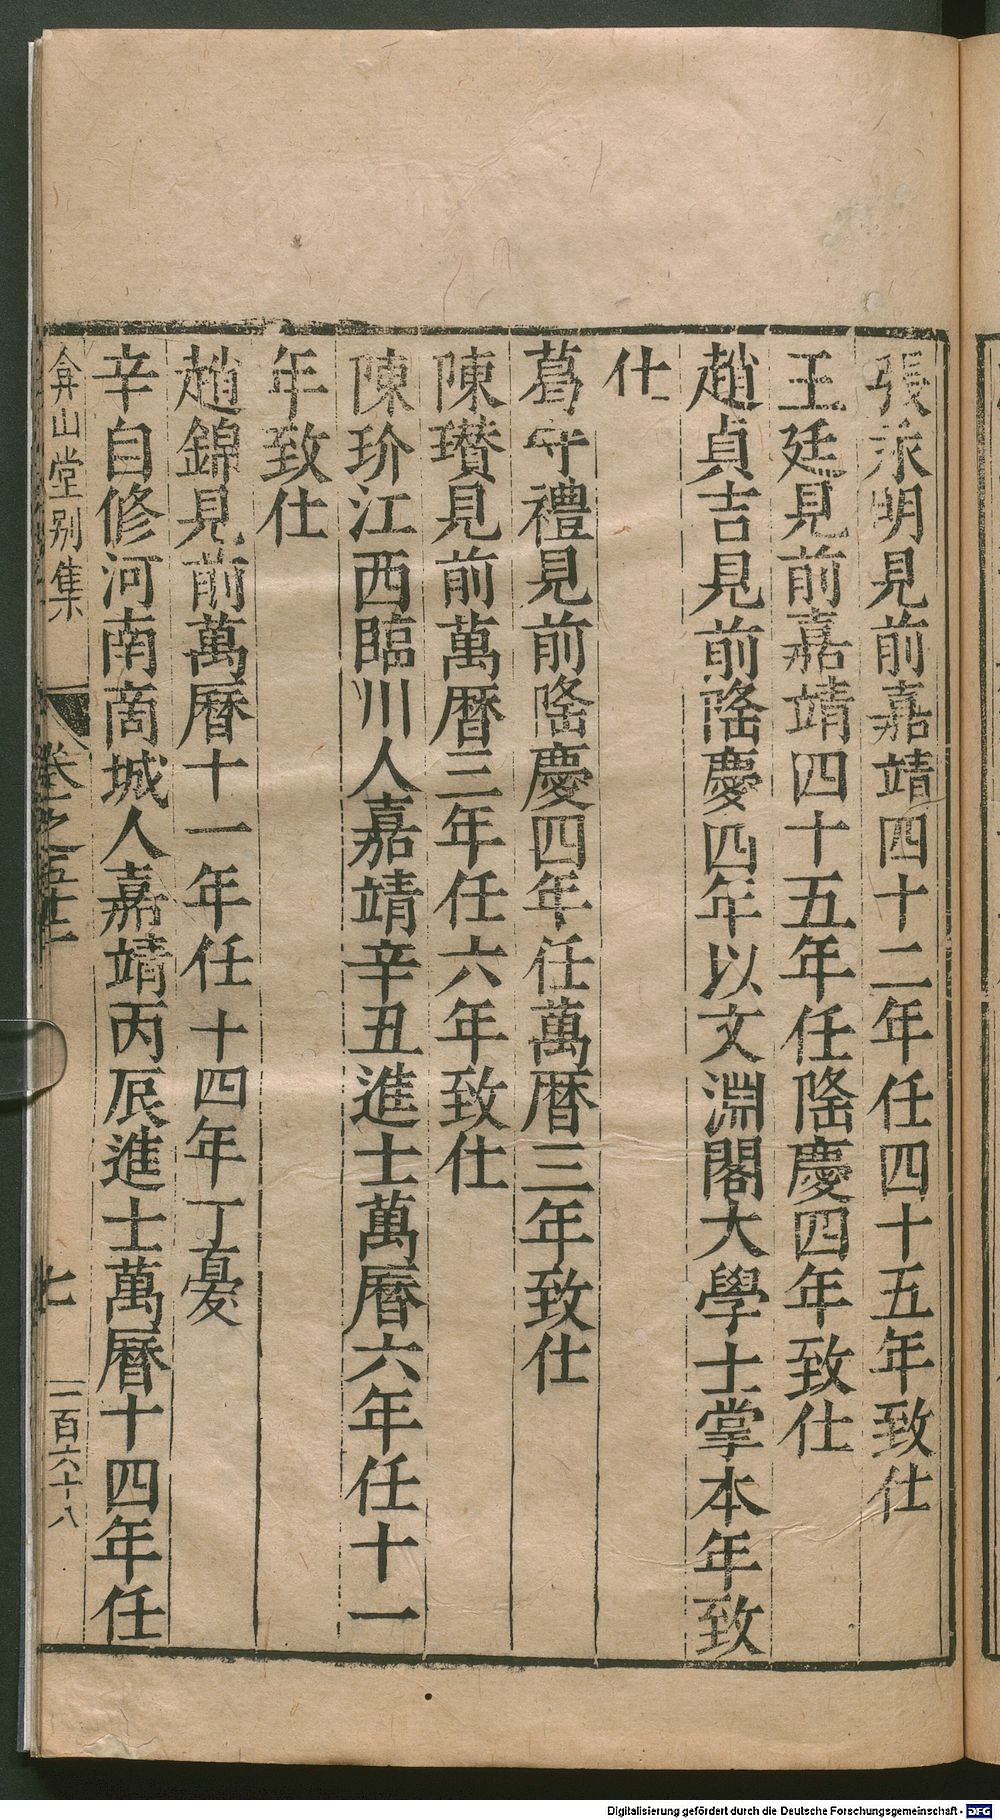 張永明見前嘉靖四十二年任四十五年致仕
王廷見前嘉靖四十五年任隆慶四年致仕
趙貞吉見前隆慶四年以文淵閣大學士掌本年致
仕
葛守禮見前隆慶四年任萬曆三年致仕
陳瓚見前萬曆三年任六年致仕
陳玠江西臨川人嘉靖辛丑進士萬曆六年任十一
年致仕
趙錦見前萬曆十一年任十四年丁憂
辛自修河南啇城人嘉靖丙辰進士萬曆十四年任
弇山堂别集 卷之五十 七 一百六十八
Digitalisierung gefördert durch die Deutsche Forschungsgemeinschaft - DFG